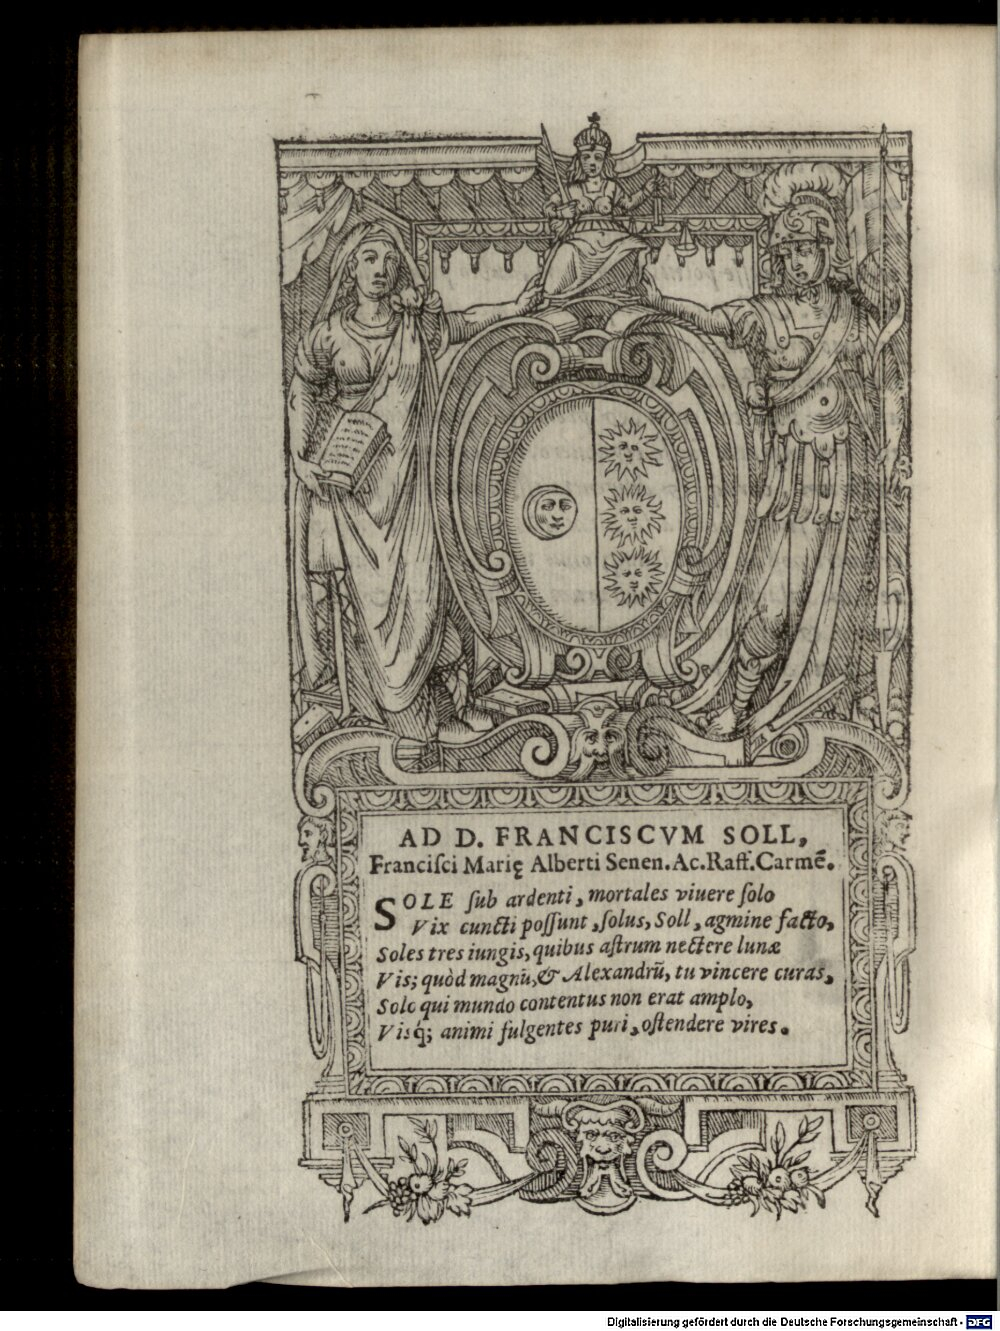 AD D. FRANCISCVM SOLL,
Franciſci Marię Alberti Senen. Ac. Raff. Carmē.
SOLE ſub ardenti, mortales viuere ſolo
Vix cuncti poſſunt, ſolus, Soll, agmine facto,
Soles tres iungis, quibus aſtrum nectere lunæ
Vis; quòd magnū, & Alexandrū, tu vincere curas,
Solo qui mundo contentus non erat amplo,
Visq́; animi fulgentes puri, oſtendere vires.
Digitalisierung gefördert durch die Deutsche Forschungsgemeinschaft - DFG